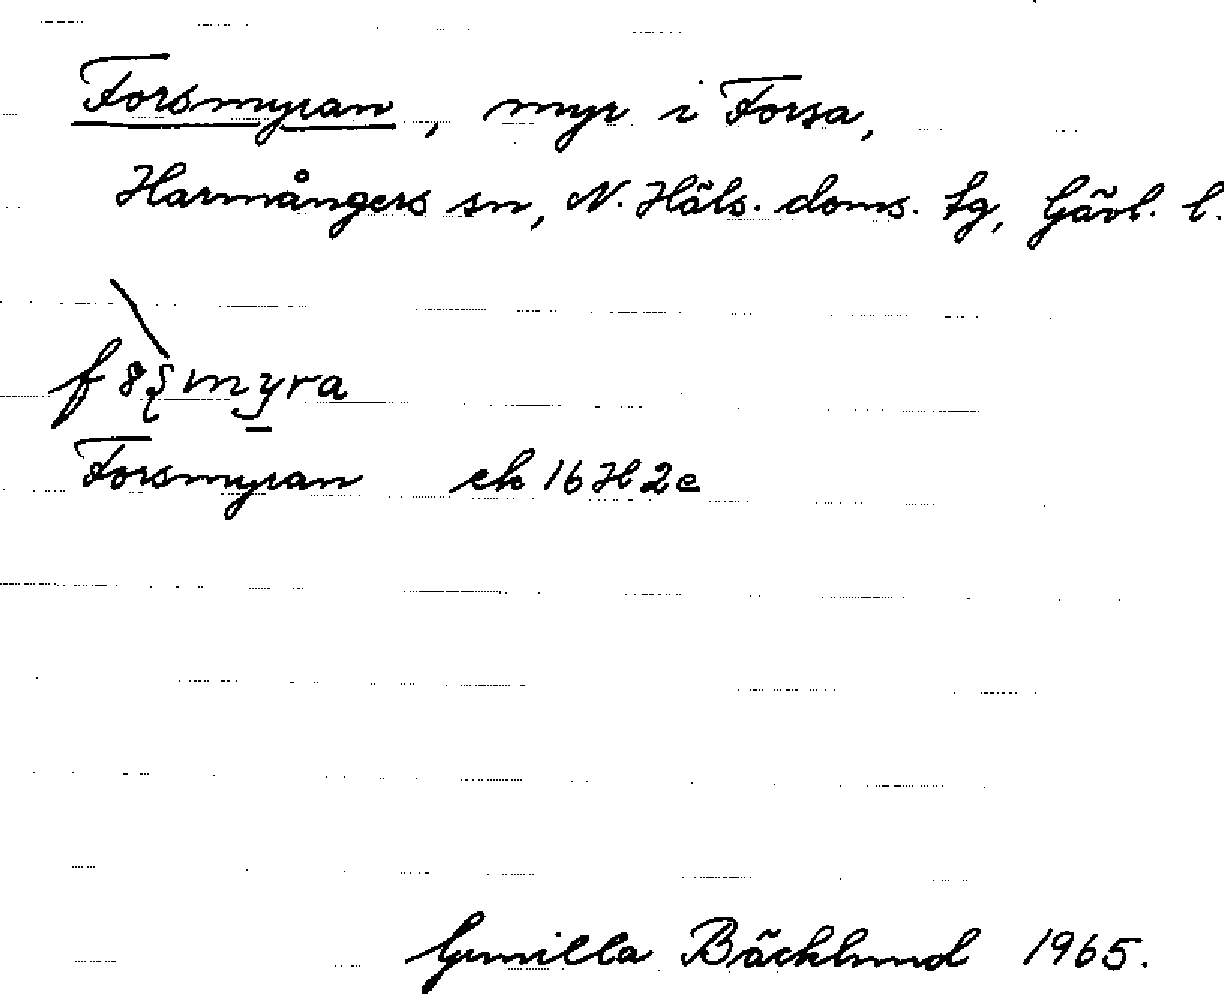 Forsmyran, myr i Forsa,
Harmångers sn, N. Häls. doms. tg, Gävl. l.
myra
Forsmyran ek 16 H 2 e
Gunilla Bäcklund 1965.